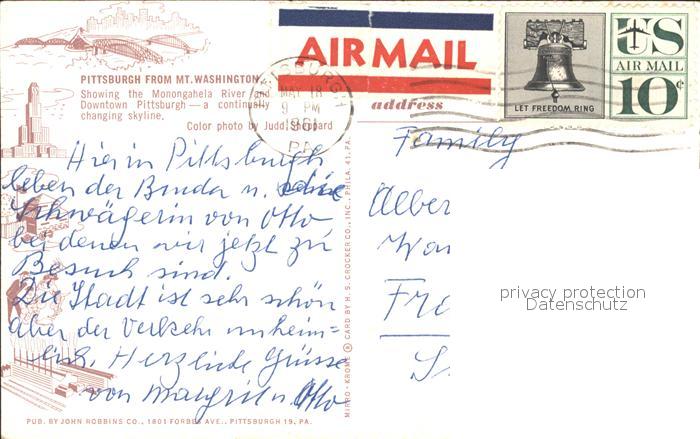 AIR MAIL
LET FREEDOM RING
US
AIR MAIL
10¢
PITTSBURGH FROM MT. WASHINGTON
Showing the Monongahela River and
Downtown Pittsburgh — a continually
changing skyline.
Color photo by Judd Sheppard
PITTSBURGH
MAY 18
9 PM
1961
PA
address
Family
Hier in Pittsburgh
leben der Bruder u. die
Schwägerin von Otto
bei denen wir jetzt zu
Besuch sind.
Die Stadt ist sehr schön
aber der Verkehr unheim=
lich. Herzliche Grüsse
von Margrit u. Otto
Alber
Fre
S.
privacy protection
Datenschutz
MIRRO-KROME ® CARD BY H. S. CROCKER CO., INC., PHILA. 41, PA.
PUB. BY JOHN ROBBINS CO., 1801 FORBES AVE., PITTSBURGH 19, PA.